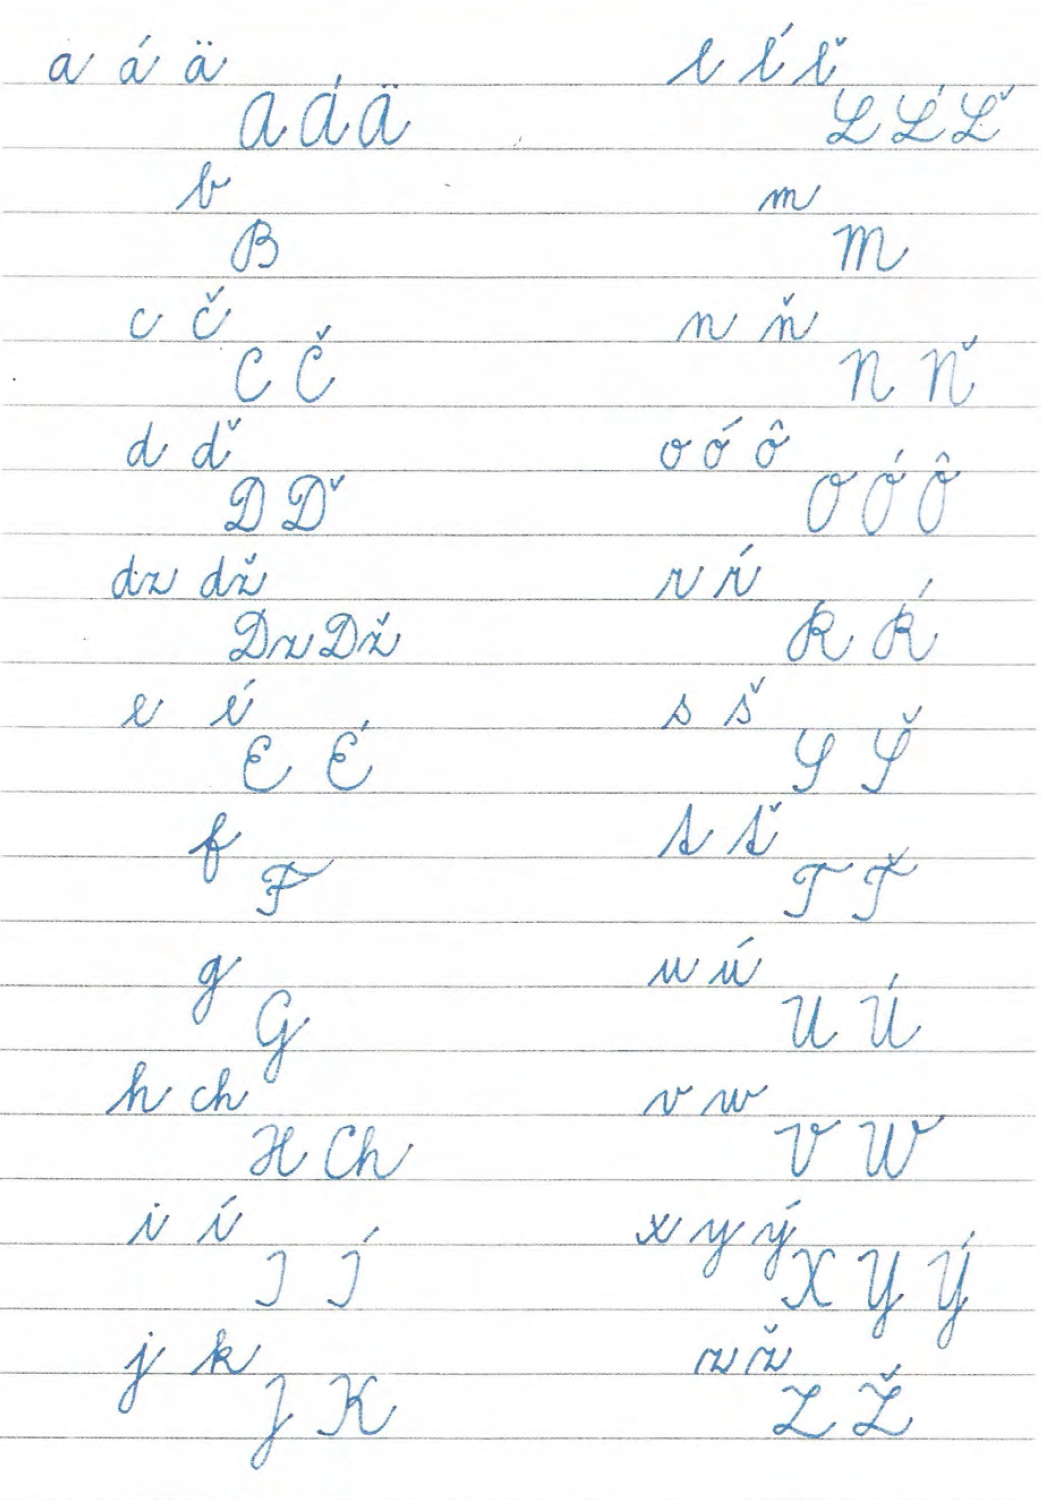 a á ä
A Á Ä
b
B
c č
C Č
d ď
D Ď
dz dž
Dz Dž
e é
E É
f
F
g
G
h ch
H Ch
i í
I Í
j k
J K
l ĺ ľ
L Ĺ Ľ
m
M
n ň
N Ň
o ó ô
O Ó Ô
r ŕ
R Ŕ
s š
S Š
t ť
T Ť
u ú
U Ú
v w
V W
x y ý
X Y Ý
z ž
Z Ž